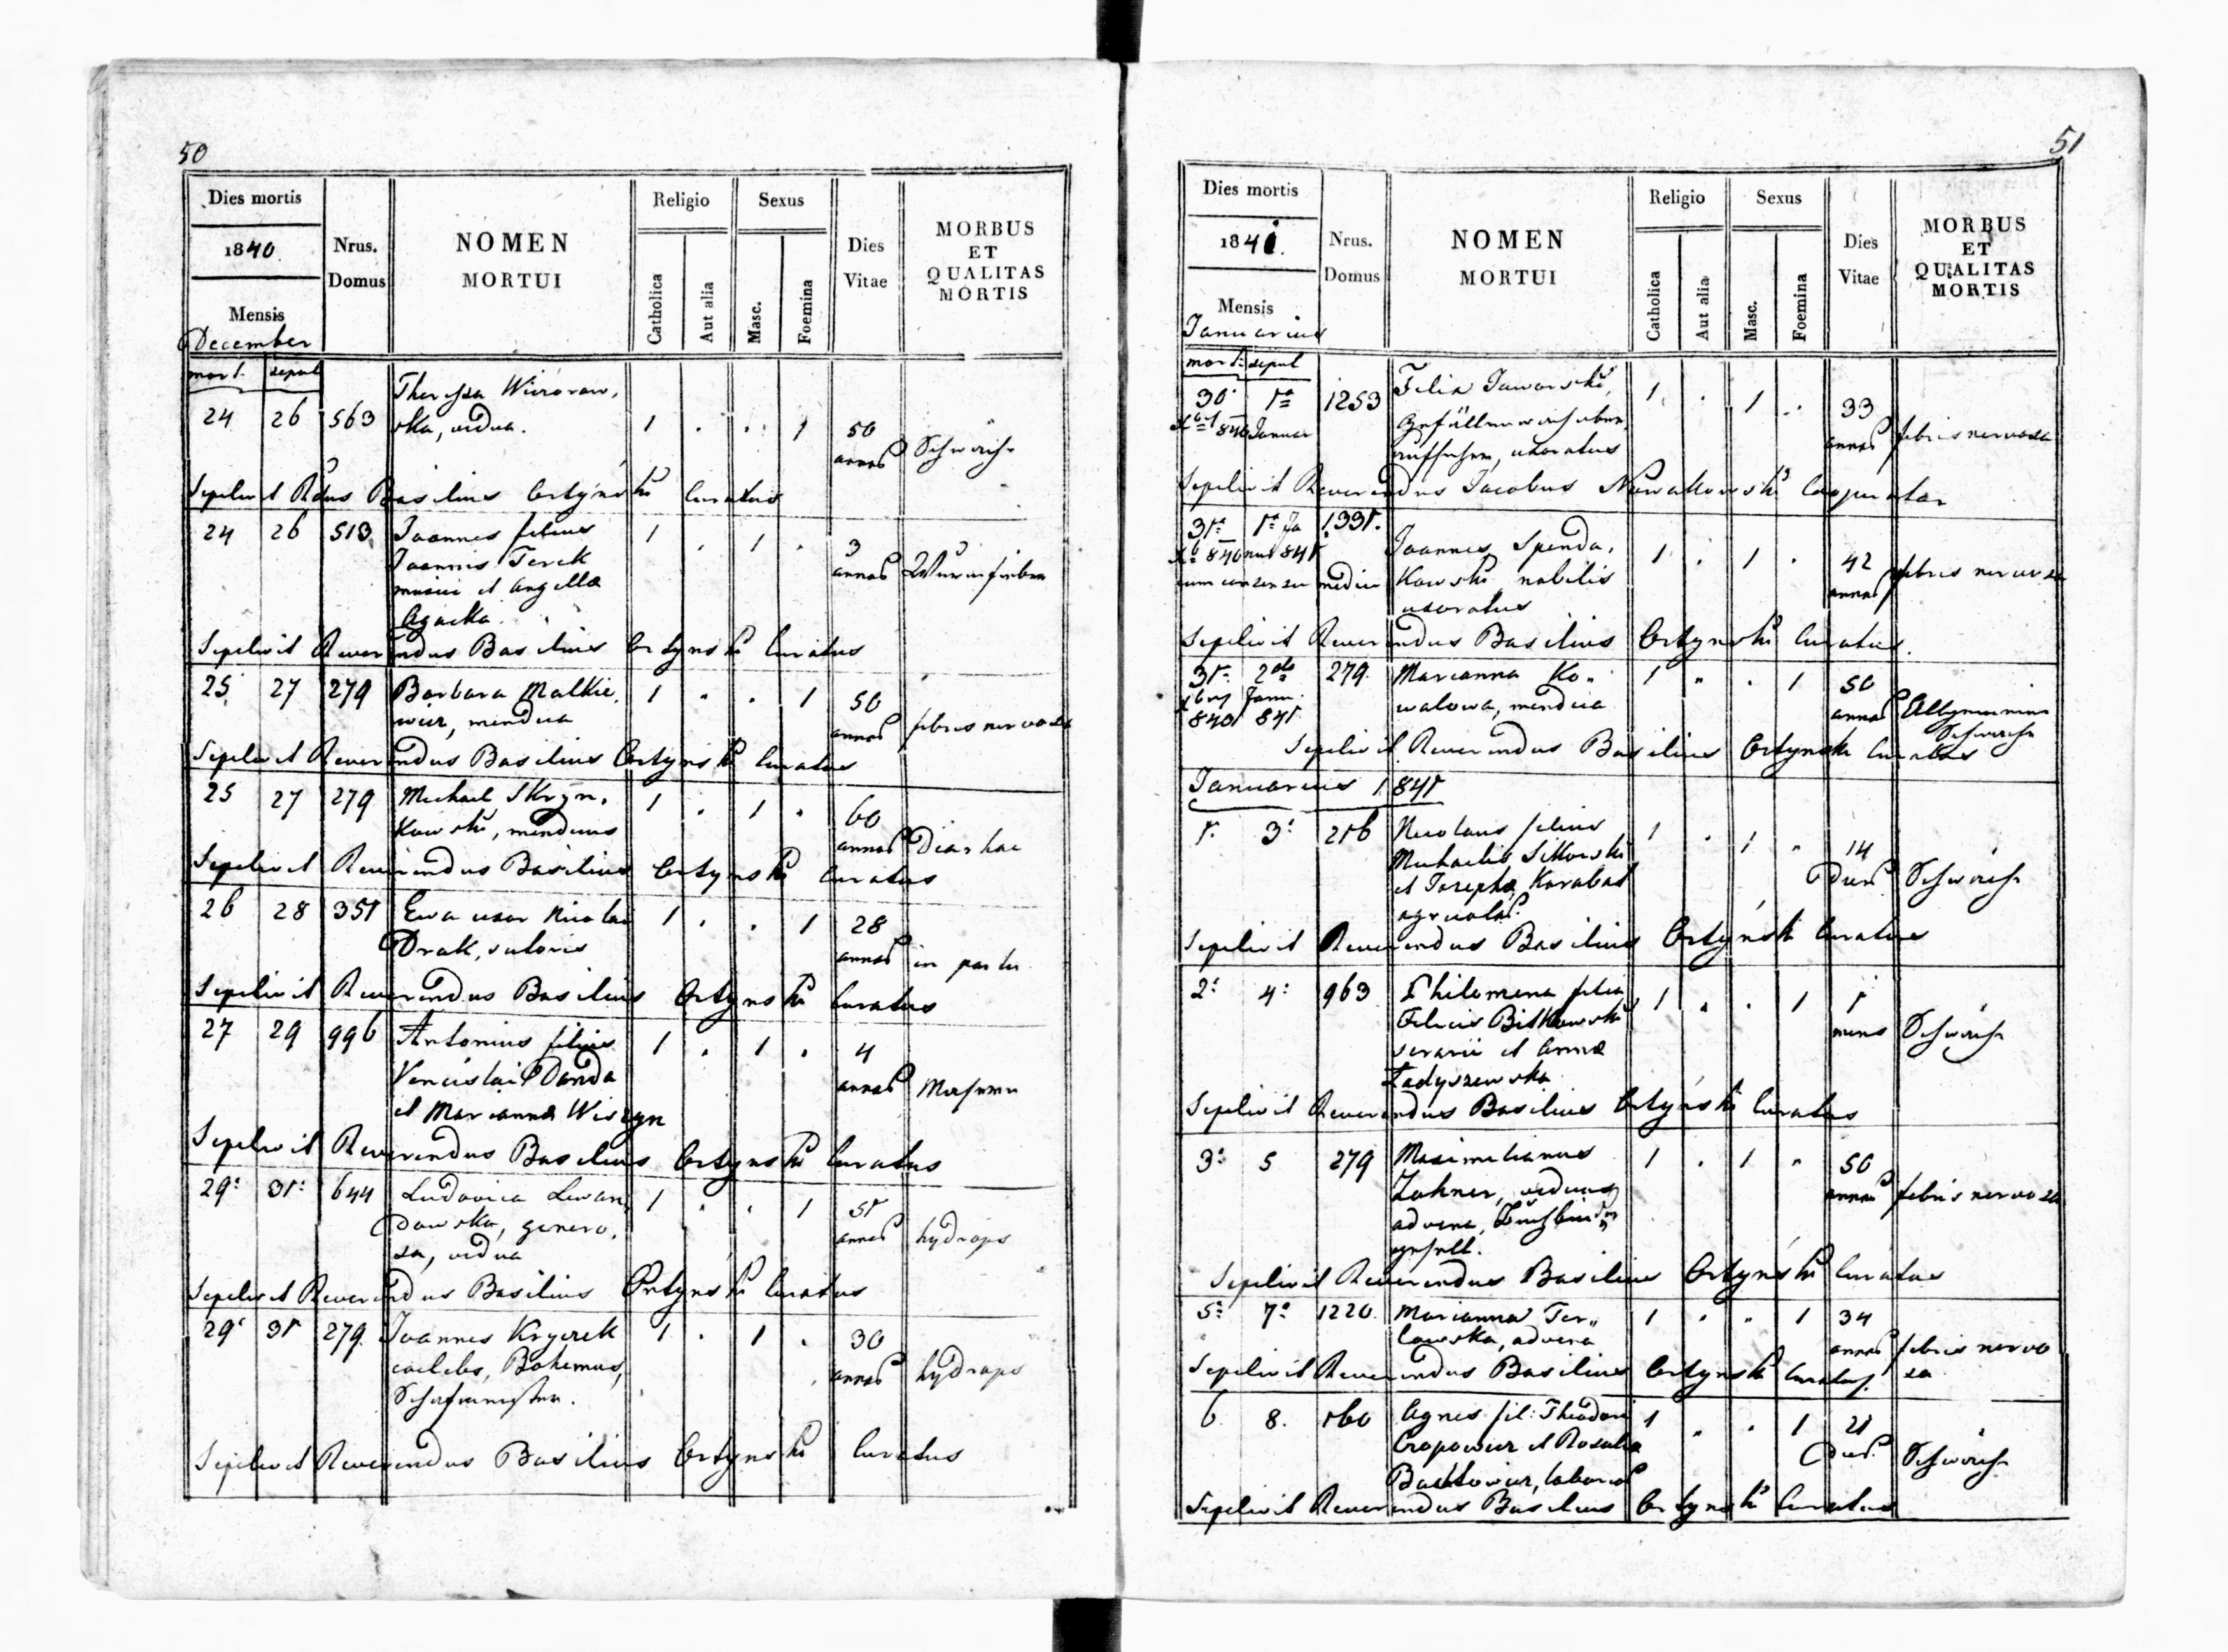 50
Dies mortis
1840.
Mensis
December
Nrus.
Domus
NOMEN
MORTUI
Religio
Catholica
Aut alia
Sexus
Masc.
Foemina
Dies
Vitae
MORBUS
ET
QUALITAS
MORTIS
mort. sepul
24 26 563 Theressa Wizorow,
ska, vidua. 1 . . 1 50
annos Schwäche
Sepelivit Rdus Basilius Ortyński Curatus
24 26 513 Joannes filius 1 . 1 . 3
Joannis Terek annos Wurmfieber
musici et Angellae
Agacka
Sepelivit Reverendus Basilius Ortynski Curatus
25 27 279 Barbara Malkie, 1 . . 1 50
wicz, mendica annos febris nervosa
Sepelivit Reverendus Basilius Ortynski Curatus
25 27 279 Michael Skryn, 1 . 1 . 60
kowski, mendicus annos Diarhae
Sepelivit Reverendus Basilius Ortynski Curatus
26 28 351 Ewa uxor Nicolai 1 . . 1 28
Drak, sutoris annos in partu
Sepelivit Reverendus Basilius Ortynski Curatus
27 29 996 Antonius filius 1 . 1 . 4
Venceslai Danda annos Masern
et Mariannae Wiszyn
Sepelivit Reverendus Basilius Ortynski Curatus
29: 31: 644 Ludovica Lewan, 1 . . 1 51
dowska, genero, annos hydrops
sa, vidua
Sepelivit Reverendus Basilius Ortynski Curatus
29: 31 279. Joannes Kryczek 1 . 1 . 30
caelebs, Bohemus, annos hydrops
Schafmeister.
Sepelivit Reverendus Basilius Ortynski Curatus
51
Dies mortis
1841.
Mensis
Januarius
Nrus.
Domus
NOMEN
MORTUI
Religio
Catholica
Aut alia
Sexus
Masc.
Foemina
Dies
Vitae
MORBUS
ET
QUALITAS
MORTIS
mort: sepul
30 1a 1253 Felix Jaworski, 1 . 1 . 33
840 Januar
aufseher, uxoratus annos febris nervosa
Sepelivit Reverendus Jacobus Nowakowski Cooperator
31a 1a Ja 1331. Joannes Spenda, 1 . 1 . 42
840 nua 841 kowski nobilis annos febris nervosa
cum consensu medici uxoratus
Sepelivit Reverendus Basilius Ortynski Curatus.
31a 2da 279. Marianna Ko„ 1 „ . 1 50
Xbris Janu. walowa, mendica annos Allgemeine
840 841 Schwäche
Sepelivit Reverendus Basilius Ortynski Curatus
Januarius 1841
1. 3: 216 Nicolaus filius 1 . 1 „ 14
Michaelis Sikorski dies Schwäche
et Josephae Karabat
agricolae.
Sepelivit Reverendus Basilius Ortyński Curatus
2: 4: 963 Philomena filia 1 . . 1 1
Felicis Bitkowski mens Schwäche
serarii et Annae
Ladyszewska
Sepelivit Reverendus Basilius Ortyński Curatus
3: 5 279 Maximilianus 1 . 1 „ 50
Zahner, viduus annos febris nervosa
advena, Tuchbinder
gesell.
Sepelivit Reverendus Basilius Ortyński Curatus
5: 7: 1220. Marianna Ter„ 1 „ „ 1 34
lowska, advena annos febris nervo
Sepelivit Reverendus Basilius Ortynski Curatus. sa
6 8. 160 Agnes fil: Theodori 1 „ . 1 21
Cropowicz et Rosalia dies Schwäche
Sepelivit Reverendus Basilius Ortynski Curatus